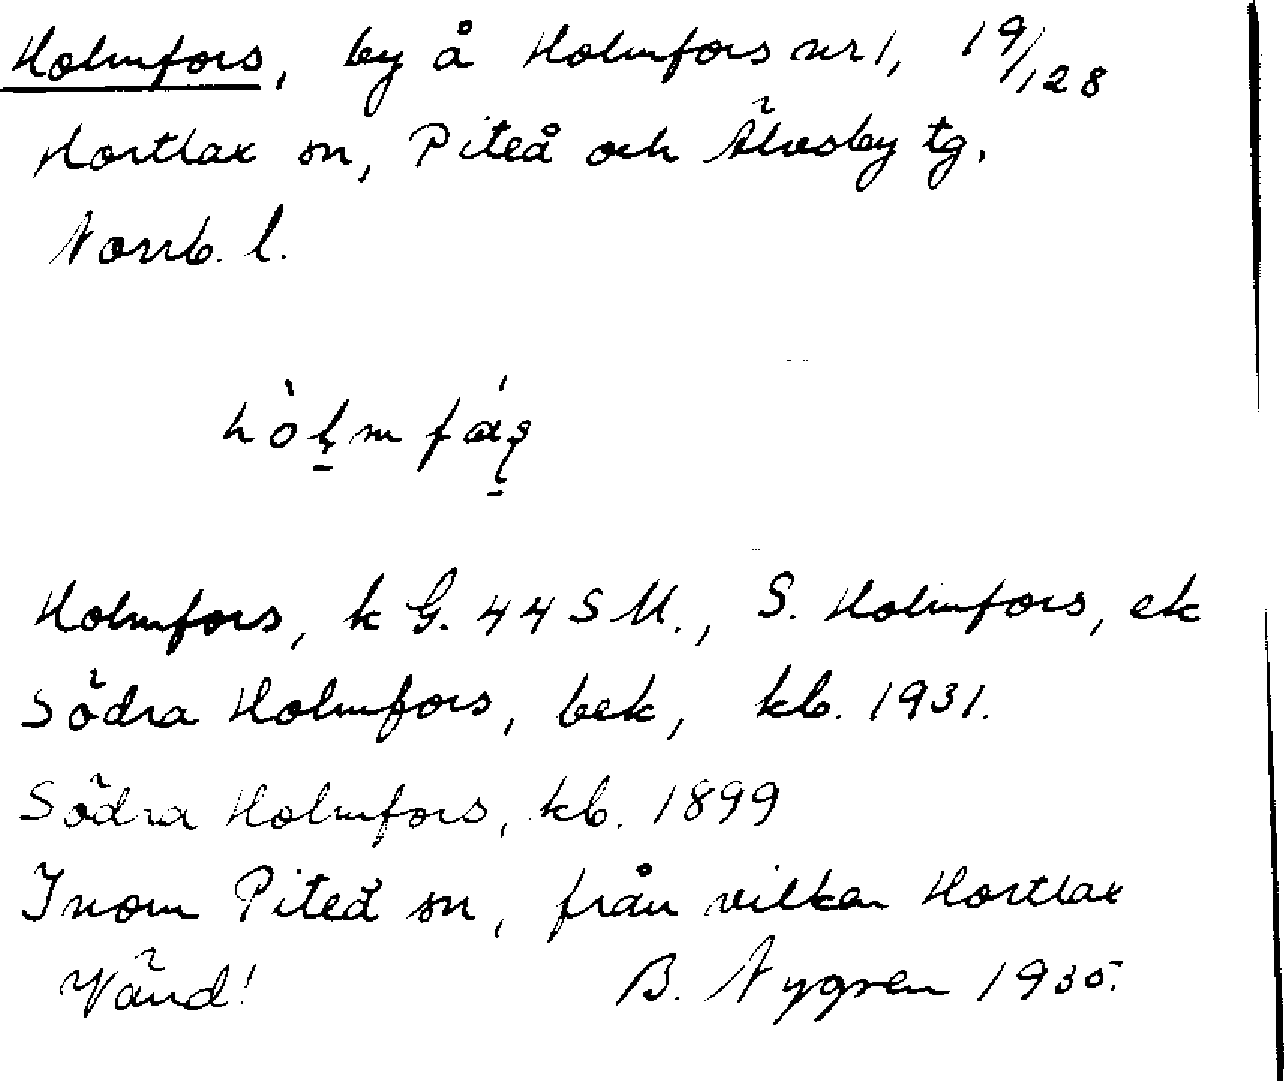 Holmfors, by å Holmfors nr 1, 19/128
Hortlax sn, Piteå och Älvsby tg.
Norrb. l.
Holmfors, k G. 44 S U., S. Holmfors, ek
Södra Holmfors, bek, kb. 1931.
Södra Holmfors, kb. 1899
Inom Piteå sn, från vilken Hortlax
Vänd! B. Nygren 1935.